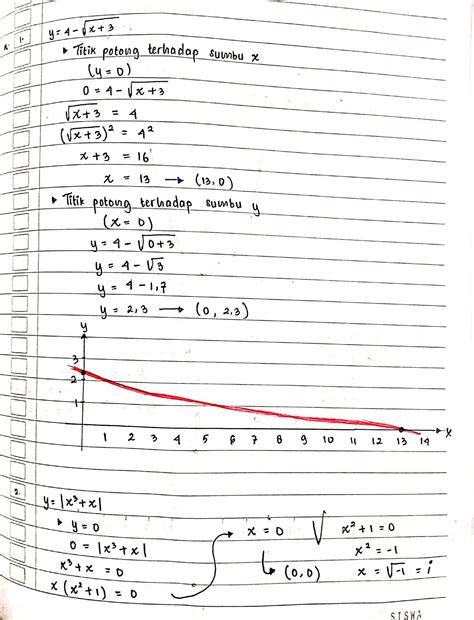 1. y = 4 - √x+3
▸ Titik potong terhadap sumbu x
(y = 0)
0 = 4 - √x+3
√x+3 = 4
(√x+3)² = 4²
x + 3 = 16
x = 13 → (13,0)
▸ Titik potong terhadap sumbu y
(x = 0)
y = 4 - √0+3
y = 4 - √3
y = 4 - 1,7
y = 2,3 → (0, 2,3)
y
3
2
1
1 2 3 4 5 6 7 8 9 10 11 12 13 14 x
2. y = |x³+x|
▸ y = 0
0 = |x³+x|
x³ + x = 0
x (x² + 1) = 0
→ x = 0 V x² + 1 = 0
x² = -1
↳ (0,0) x = √-1 = i
SISWA